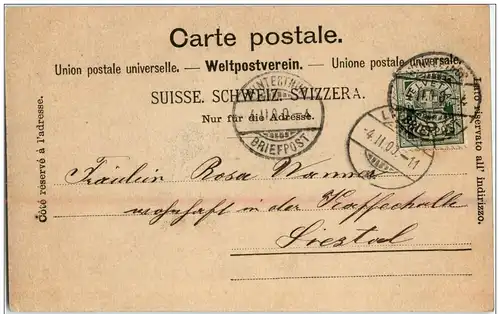 Carte postale.
Union postale universelle. — Weltpostverein. — Unione postale universale.
SUISSE. SCHWEIZ. SVIZZERA.
Nur für die Adresse.
Côté réservé à l'adresse.
Lato riservato all' indirizzo.
WINTERTHUR
4.II.0
BRIEFPOST
BRIEFPOST
-4.II.03.-11
Fräulein Rosa
wohnhaft in der Kaffeehalle
Liestal